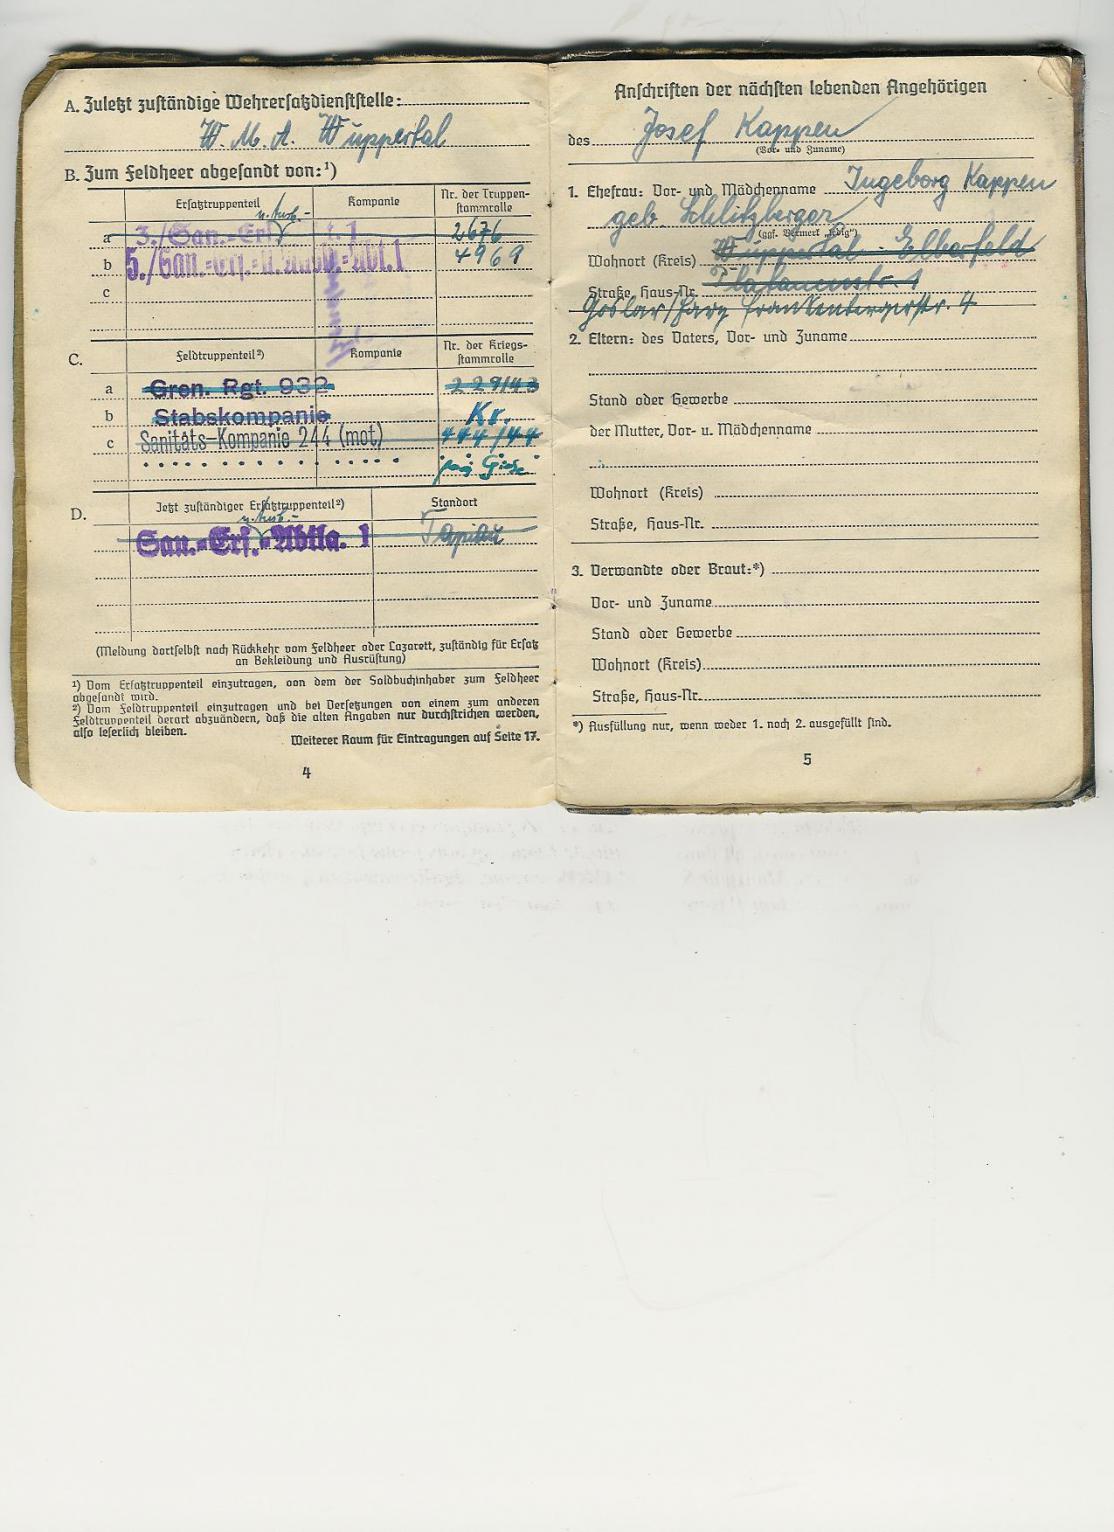 A. Zuletzt zuständige Wehrersatzdienststelle:
W. M. A. Wuppertal
B. Zum Feldheer abgesandt von:¹)
Ersatztruppenteil
u. Ausb.-
Kompanie
Nr. der Truppen-
stammrolle
a 3./San.-Ers. t. 1 2676
b 5./San.-Ers.-u.Ausb.-Abt.1 4969
c
C. Feldtruppenteil²)
Kompanie
Nr. der Kriegs-
stammrolle
a Gren. Rgt. 932 229/43
b Stabskompanie Kr.
c Sanitäts-Kompanie 244 (mot) 444/44
D. Jetzt zuständiger Ersatztruppenteil²)
u. Ausb.-
Standort
San.-Ers.-Abtlg. 1 Tapiau
(Meldung dortselbst nach Rückkehr vom Feldheer oder Lazarett, zuständig für Ersatz
an Bekleidung und Ausrüstung)
¹) Vom Ersatztruppenteil einzutragen, von dem der Soldbuchinhaber zum Feldheer
abgesandt wird.
²) Vom Feldtruppenteil einzutragen und bei Versetzungen von einem zum anderen
Feldtruppenteil derart abzuändern, daß die alten Angaben nur durchstrichen werden,
also leserlich bleiben.
Weiterer Raum für Eintragungen auf Seite 17.
4
Anschriften der nächsten lebenden Angehörigen
des Josef Kappen
(Vor- und Zuname)
1. Ehefrau: Vor- und Mädchenname Ingeborg Kappen
geb. Schlitzberger
(ggf. Vermerk „ledig“)
Wohnort (Kreis) Wuppertal - Elberfeld
Straße, Haus-Nr. Platanenstr. 1
Goslar/Harz Frankenbergerstr. 4
2. Eltern: des Vaters, Vor- und Zuname
Stand oder Gewerbe
der Mutter, Vor- u. Mädchenname
Wohnort (Kreis)
Straße, Haus-Nr.
3. Verwandte oder Braut:*)
Vor- und Zuname
Stand oder Gewerbe
Wohnort (Kreis)
Straße, Haus-Nr.
*) Ausfüllung nur, wenn weder 1. noch 2. ausgefüllt sind.
5